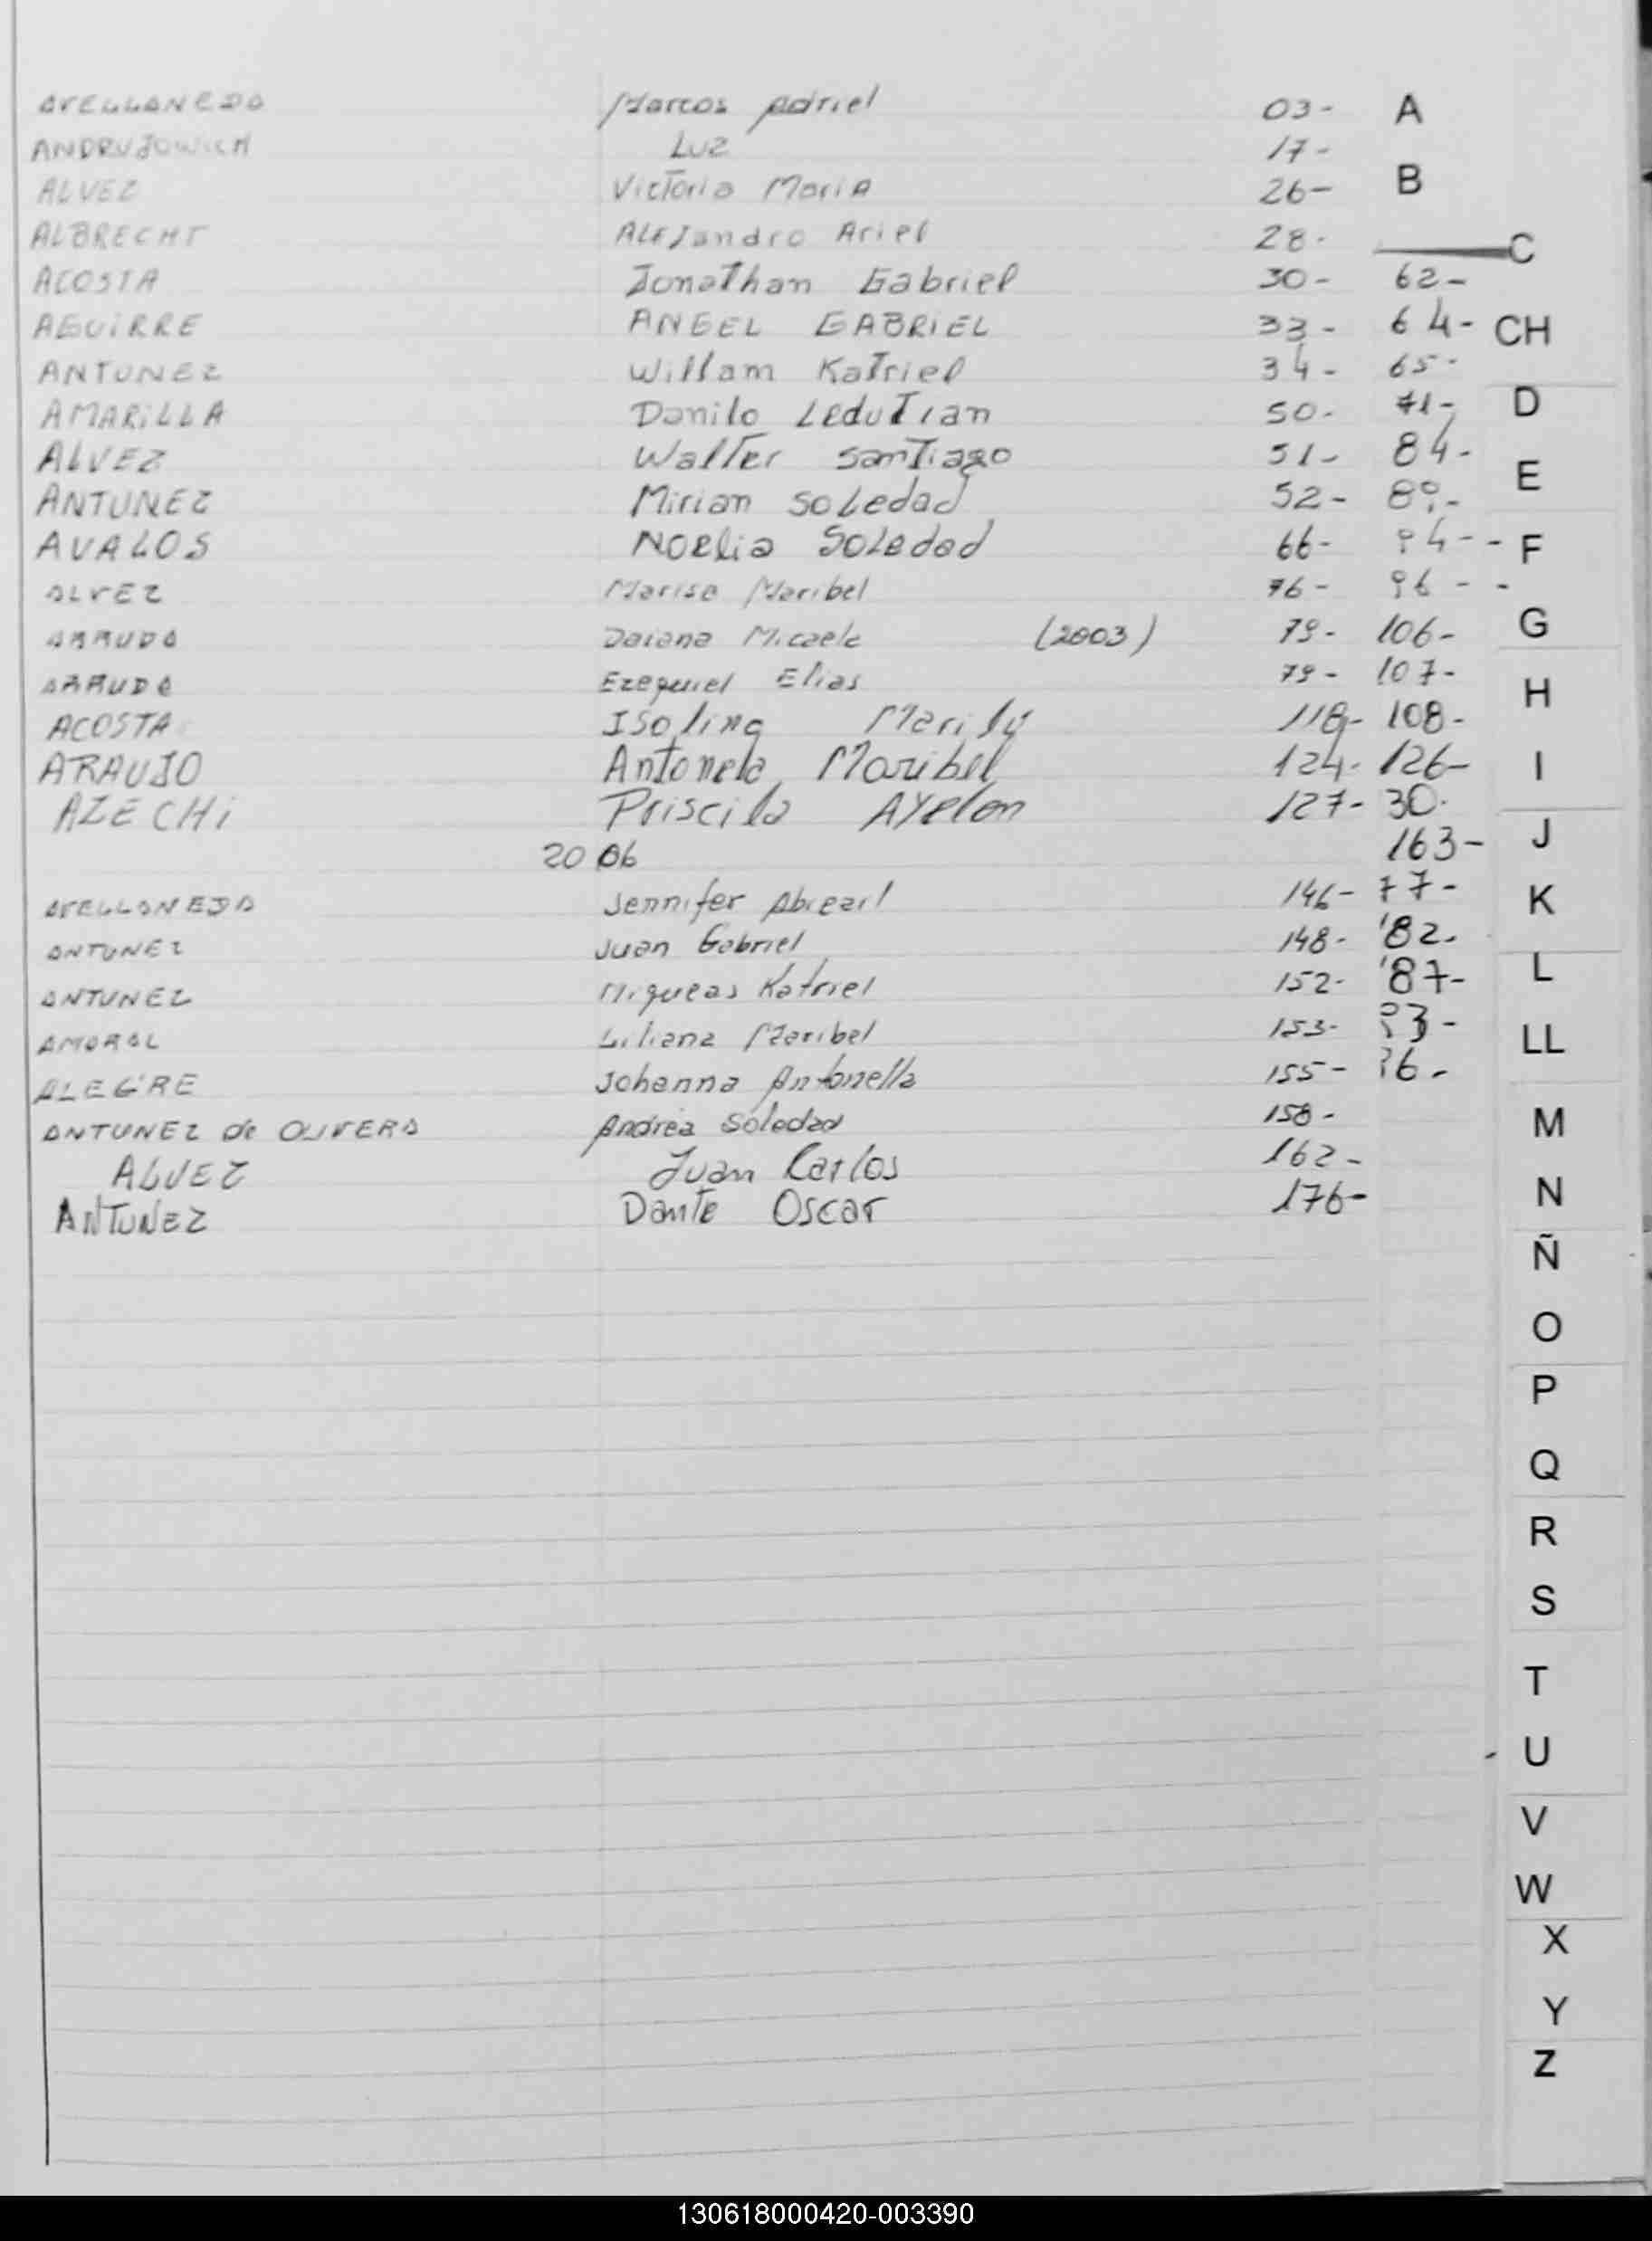 AVELLANEDA Marcos Adriel 03- A
ANDRUJOWICH Luz 17-
ALVEZ Victoria Maria 26- B
ALBRECHT ALEJandro Ariel 28-
C
ACOSTA Jonathan Gabriel 30- 62-
AGUIRRE ANGEL GABRIEL 33- 64- CH
ANTUNEZ Willam Katriel 34- 65-
AMARILLA Danilo 50- 71- D
ALVEZ Walter Santiago 51- 84-
ANTUNEZ Mirian Soledad 52- 89- E
AVALOS Noelia Soledad 66- 94-- F
ALVEZ Marisa Maribel 76- 96--
ARRUDA Daiana Micaela (2003) 79- 106- G
ARRUDA Ezequiel Elias 79- 107-
H
ACOSTA Isolina Marilú 118- 108-
ARAUJO Antonela Maribel 124- 126- I
AZECHI Priscila Ayelen 127- 30-
2006 163- J
AVELLANEDA Jennifer Abigail 146- 77- K
ANTUNEZ Juan Gabriel 148- '82-
ANTUNEZ Miqueas Katriel 152- '87- L
AMARAL Liliana Maribel 153- 93- LL
ALEGRE Johanna Antonella 155- 96-
ANTUNEZ de OLIVERA Andrea Soledad 158- M
ALVEZ Juan Carlos 162-
ANTUNEZ Dante Oscar 176- N
Ñ
O
P
Q
R
S
T
U
V
W
X
Y
Z
130618000420-003390